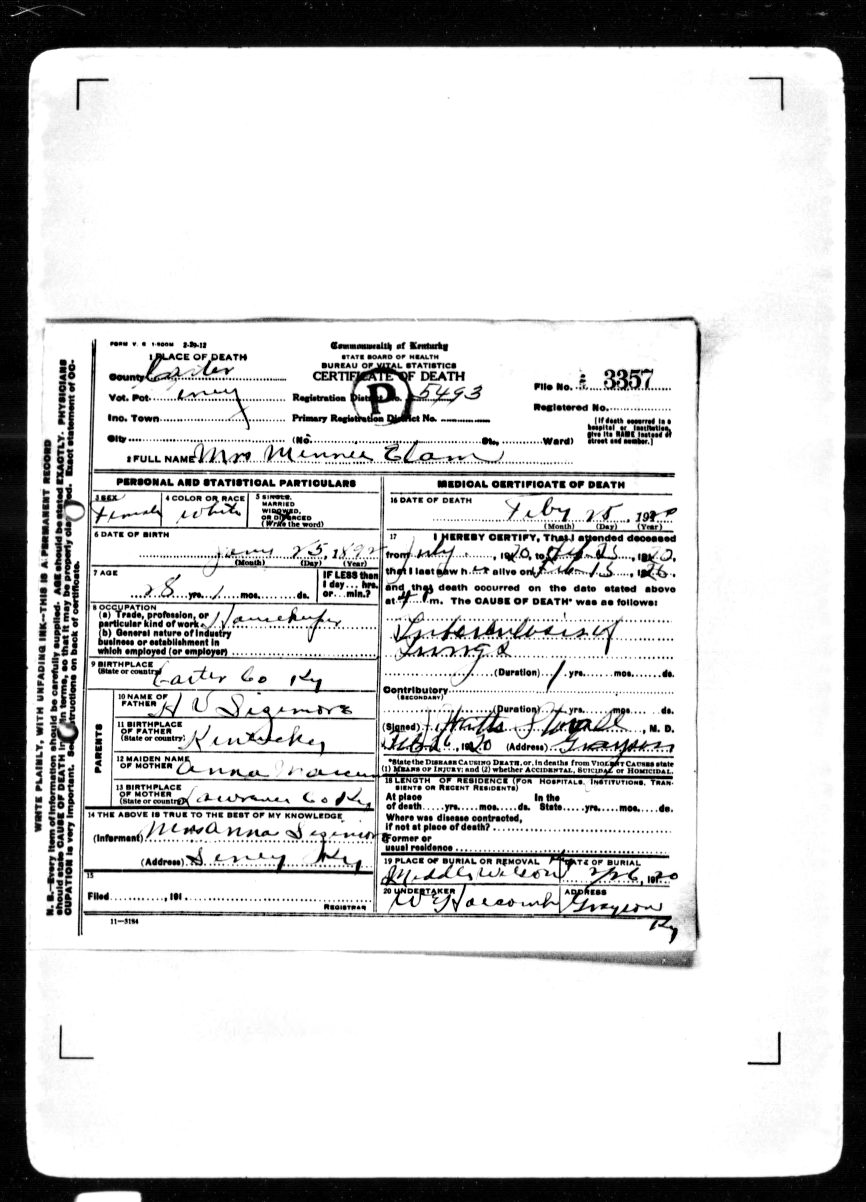 FORM V. S 1-500M 2-29-12
Commonwealth of Kentucky
STATE BOARD OF HEALTH
BUREAU OF VITAL STATISTICS
CERTIFICATE OF DEATH
P
1 PLACE OF DEATH
County Carter
Vot. Pct.
Inc. Town
City (No. St., Ward)
Registration District No. 5493
Primary Registration District No.
File No. 3357
Registered No.
[If death occurred in a
hospital or institution,
give its NAME instead of
street and number.]
2 FULL NAME Mrs Minnie Elam
PERSONAL AND STATISTICAL PARTICULARS
3 SEX
Female
4 COLOR OR RACE
White
5 SINGLE,
MARRIED
WIDOWED,
OR DIVORCED
(Write the word)
6 DATE OF BIRTH
Jany 25, 1892
(Month) (Day) (Year)
7 AGE
28 yrs. 1 mos. ds.
IF LESS than
1 day... hrs.
or... min.?
8 OCCUPATION
(a) Trade, profession, or
particular kind of work Housekeeper
(b) General nature of industry
business or establishment in
which employed (or employer)
9 BIRTHPLACE
(State or country) Carter Co Ky
PARENTS
10 NAME OF
FATHER H V Sizemore
11 BIRTHPLACE
OF FATHER
(State or country) Kentucky
12 MAIDEN NAME
OF MOTHER Anna
13 BIRTHPLACE
OF MOTHER
(State or country) Lawrence Co Ky
14 THE ABOVE IS TRUE TO THE BEST OF MY KNOWLEDGE
(Informant) Mrs Anna Sizemore
(Address) Ky
15
Filed , 191 .
REGISTRAR
11—3184
MEDICAL CERTIFICATE OF DEATH
16 DATE OF DEATH
Feby 25, 1920
(Month) (Day) (Year)
17 I HEREBY CERTIFY, That I attended deceased
from July , 1920, to Feb 25 , 1920.
that I last saw her alive on Feb 15 , 1920.
and that death occurred on the date stated above
at 4 m. The CAUSE OF DEATH* was as follows:
Tuberculosis of
Lungs
(Duration) 1 yrs. mos. ds.
Contributory
(SECONDARY)
(Duration) yrs. mos. ds.
(Signed) Watts Stovall, M. D.
, 1920 (Address) Grayson
*State the DISEASE CAUSING DEATH, or, in deaths from VIOLENT CAUSES state
(1) MEANS OF INJURY; and (2) whether ACCIDENTAL, SUICIDAL or HOMICIDAL.
18 LENGTH OF RESIDENCE (FOR HOSPITALS, INSTITUTIONS, TRAN-
SIENTS OR RECENT RESIDENTS)
At place In the
of death yrs. mos. ds. State yrs. mos. ds.
Where was disease contracted,
if not at place of death?
Former or
usual residence
19 PLACE OF BURIAL OR REMOVAL
DATE OF BURIAL
2/26, 1920
20 UNDERTAKER
Holcomb
ADDRESS
Grayson
Ky
WRITE PLAINLY, WITH UNFADING INK—THIS IS A PERMANENT RECORD
N. B.—Every item of information should be carefully supplied. AGE should be stated EXACTLY. PHYSICIANS
should state CAUSE OF DEATH in plain terms, so that it may be properly classified. Exact statement of OC-
CUPATION is very important. See instructions on back of certificate.